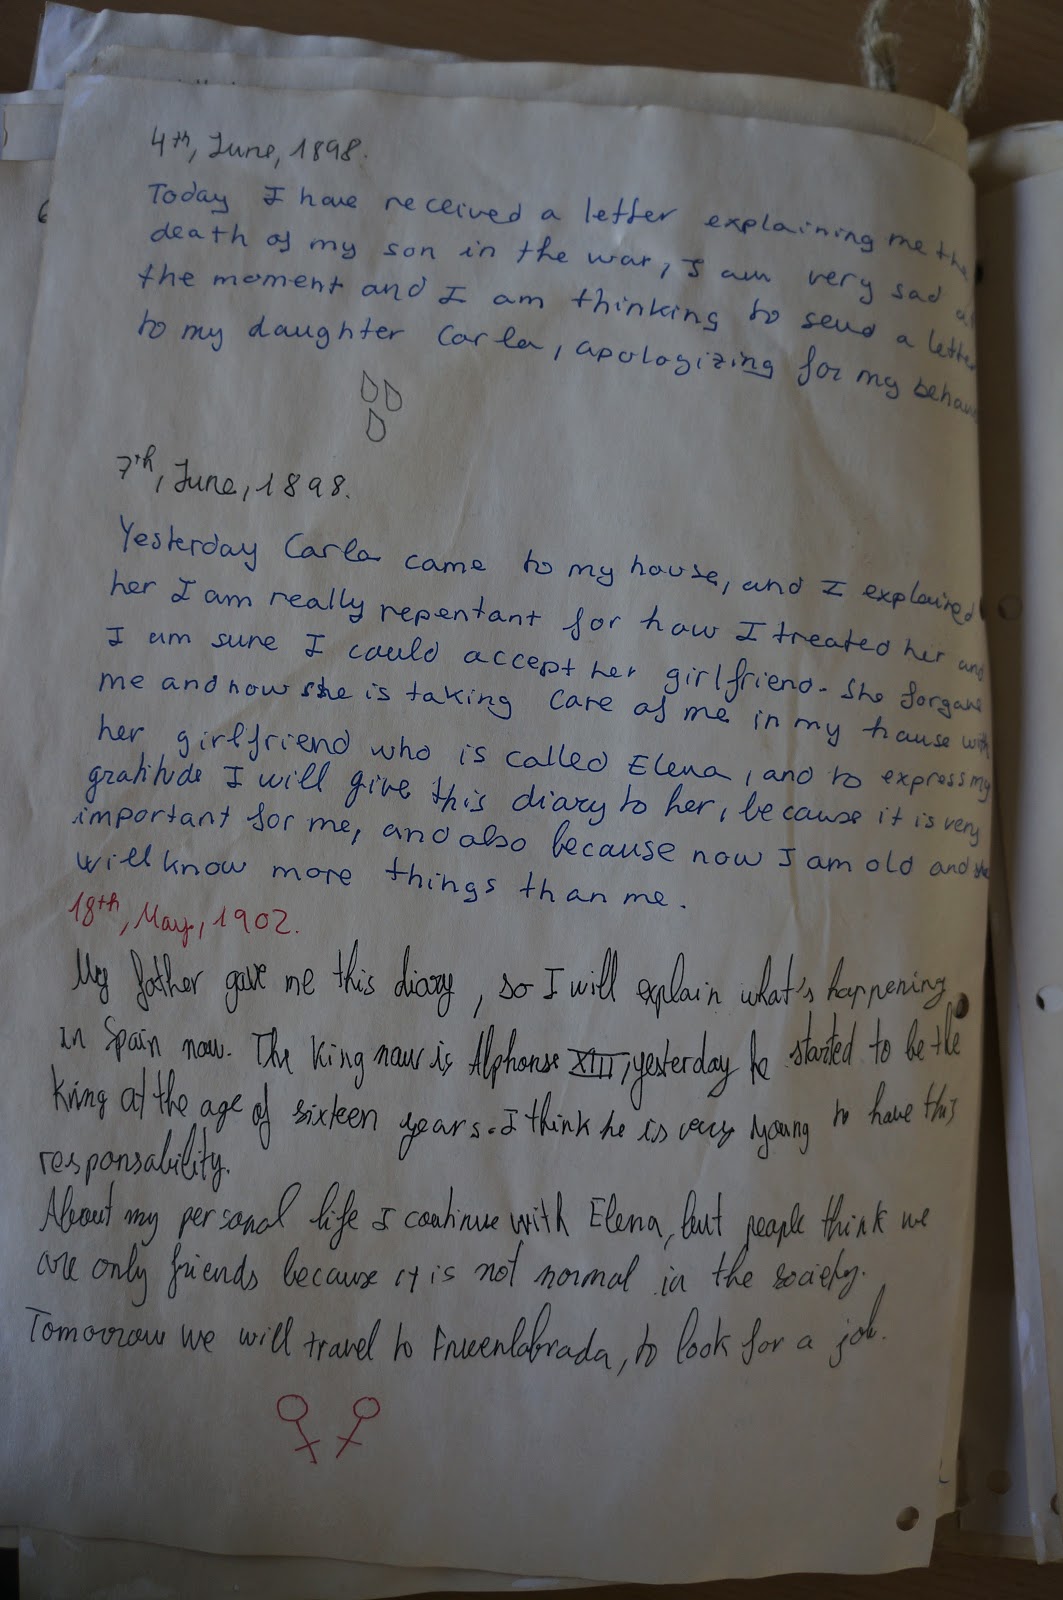 4th, June, 1898.
Today I have received a letter explaining me the
death of my son in the war, I am very sad at
the moment and I am thinking to send a letter
to my daughter Carla, apologizing for my behav
7th, June, 1898.
Yesterday Carla came to my house, and I explained
her I am really repentant for how I treated her and
I am sure I could accept her girlfriend. She forgave
me and now she is taking care of me in my hause with
her girlfriend who is called Elena, and to express my
gratitude I will give this diary to her, because it is very
important for me, and also because now I am old and she
will know more things than me.
18th, May, 1902.
My father gave me this diary, so I will explain what's happening
in Spain now. The King now is Alphonse XIII, yesterday he started to be the
king at the age of sixteen years. I think he is very young to have this
responsability.
About my personal life I continue with Elena, but people think we
are only friends because it is not normal in the society.
Tomorrow we will travel to Fuenlabrada, to look for a job.